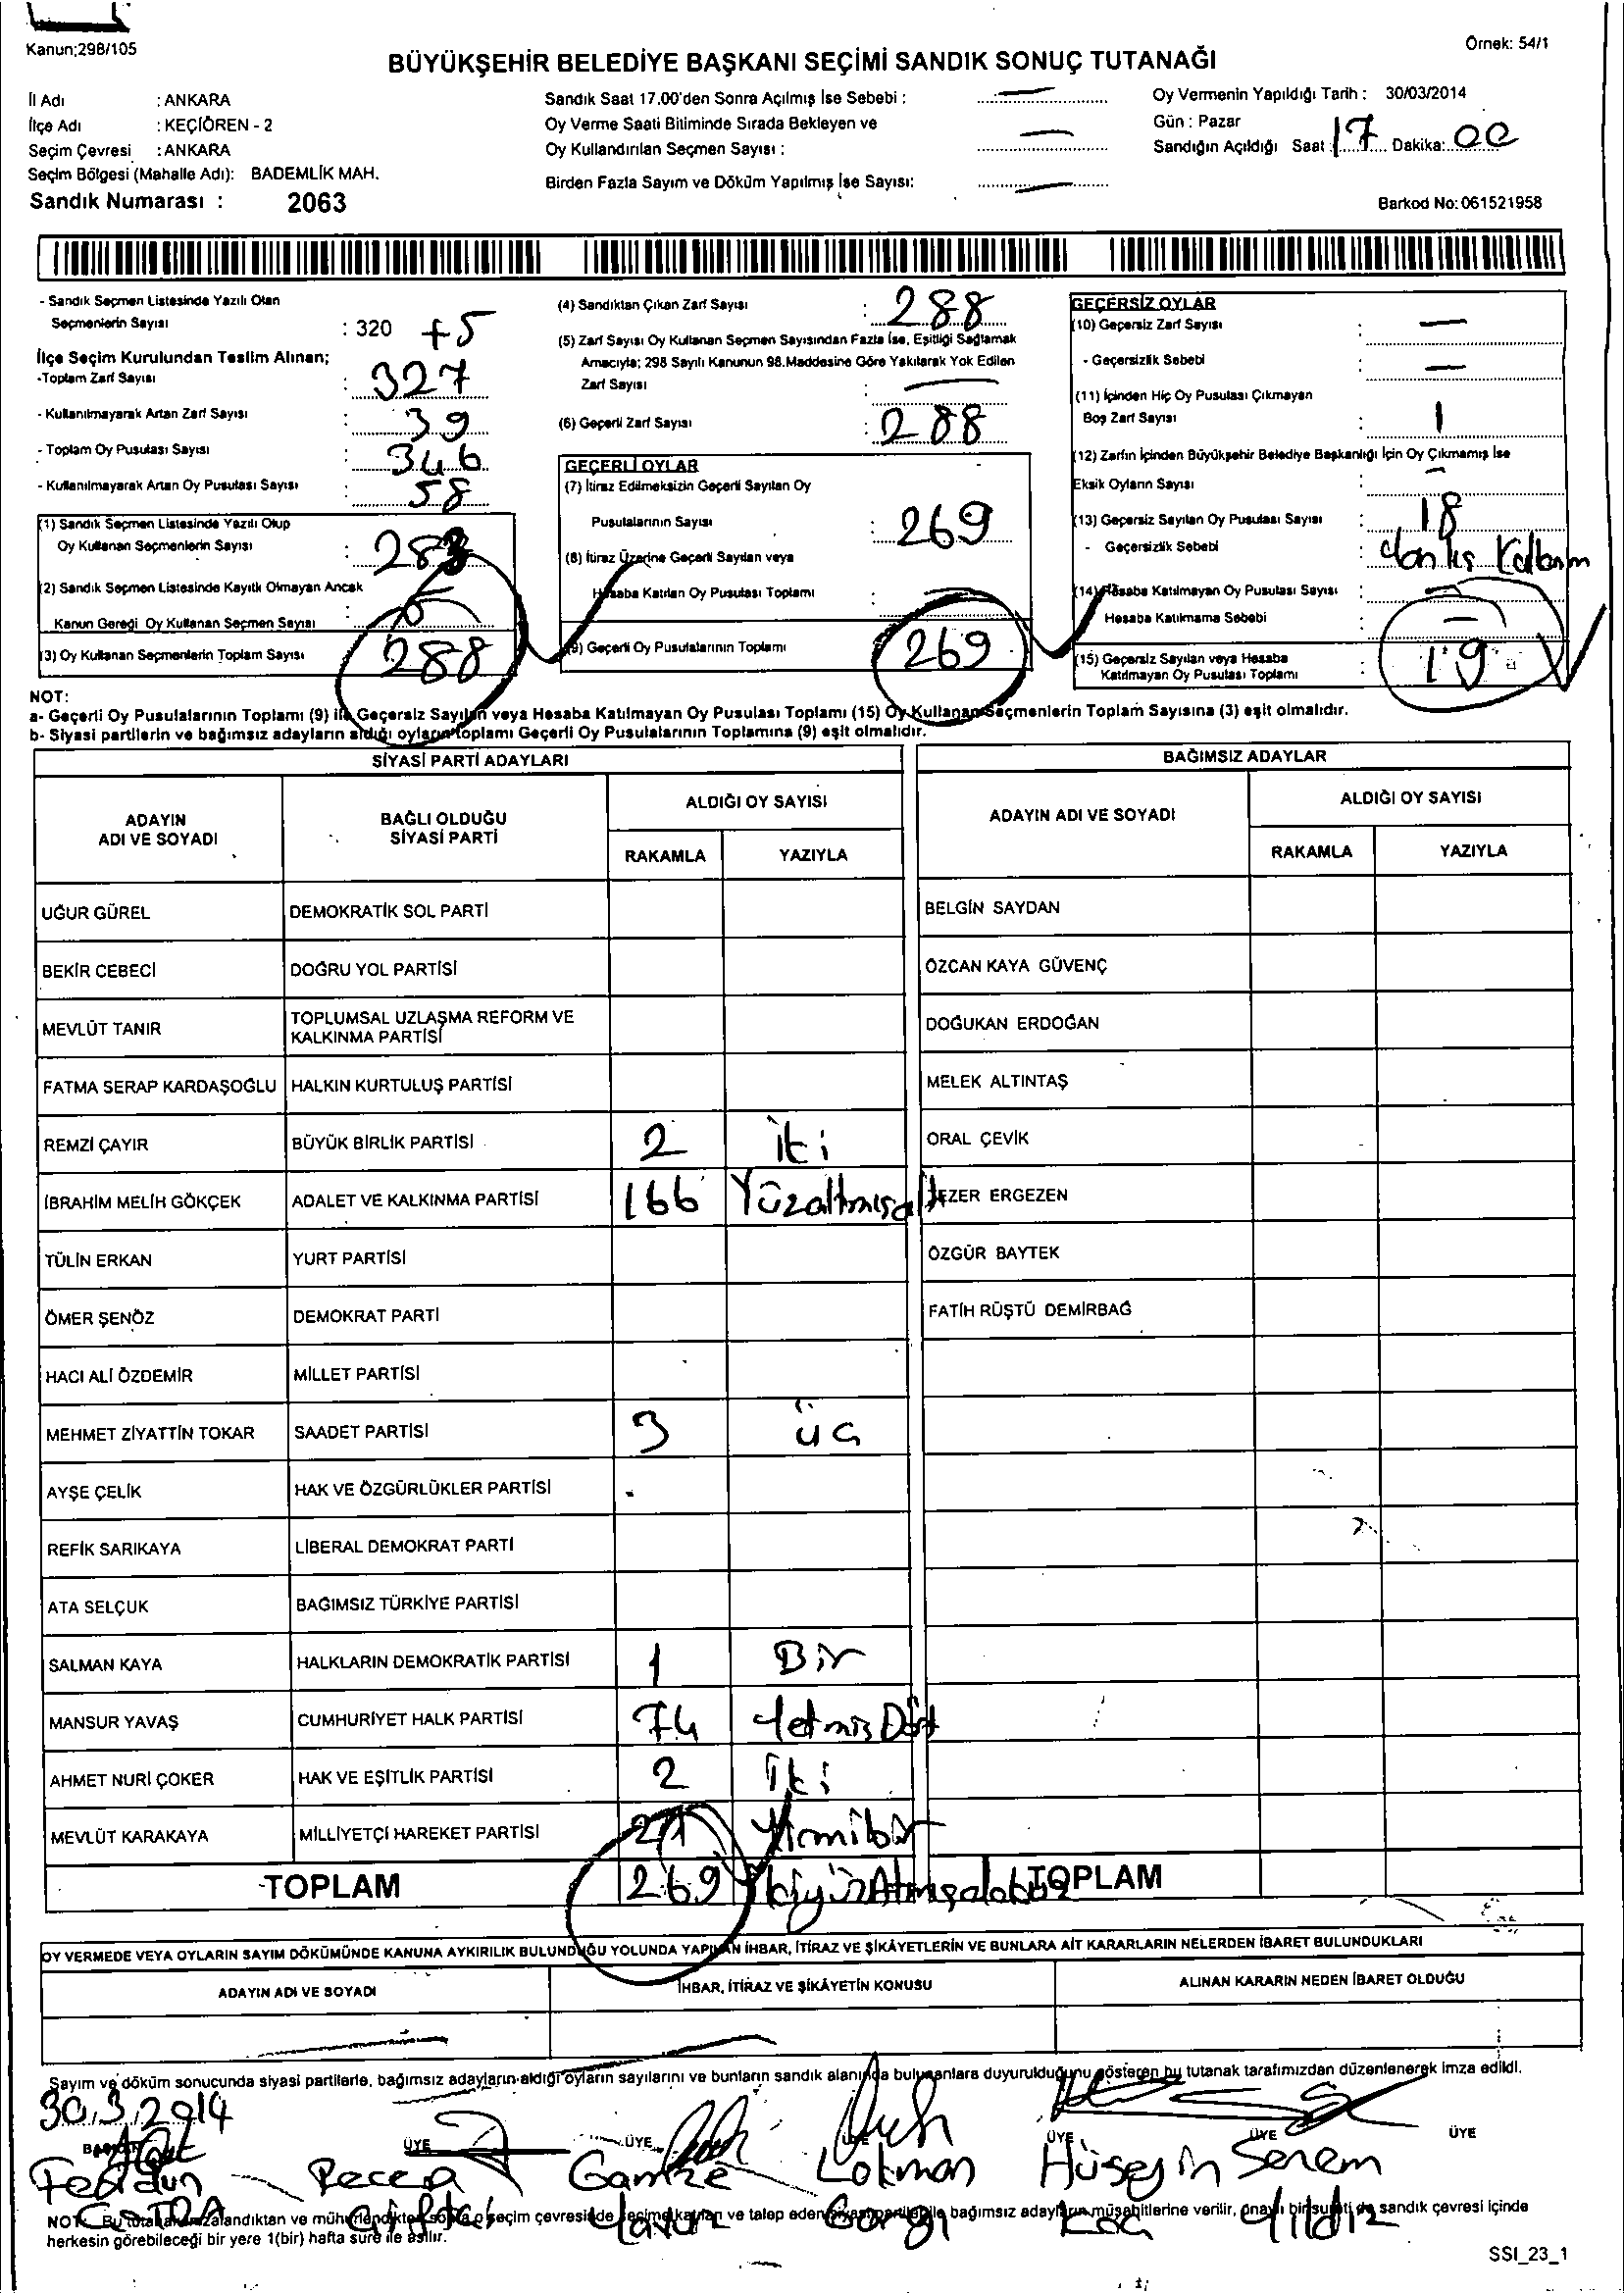 Kanun;298/105
Örnek: 54/1
BÜYÜKŞEHİR BELEDİYE BAŞKANI SEÇİMİ SANDIK SONUÇ TUTANAĞI
İl Adı : ANKARA
İlçe Adı : KEÇİÖREN - 2
Seçim Çevresi : ANKARA
Seçim Bölgesi (Mahalle Adı): BADEMLİK MAH.
Sandık Numarası : 2063
Sandık Saat 17.00'den Sonra Açılmış İse Sebebi : —
Oy Verme Saati Bitiminde Sırada Bekleyen ve
Oy Kullandırılan Seçmen Sayısı : —
Birden Fazla Sayım ve Döküm Yapılmış İse Sayısı: —
Oy Vermenin Yapıldığı Tarih : 30/03/2014
Gün : Pazar
Sandığın Açıldığı Saat : 17 Dakika: 00
Barkod No: 061521958
- Sandık Seçmen Listesinde Yazılı Olan
Seçmenlerin Sayısı : 320 +5
İlçe Seçim Kurulundan Teslim Alınan;
-Toplam Zarf Sayısı : 327
- Kullanılmayarak Artan Zarf Sayısı : 39
- Toplam Oy Pusulası Sayısı : 346
- Kullanılmayarak Artan Oy Pusulası Sayısı : 58
(1) Sandık Seçmen Listesinde Yazılı Olup
Oy Kullanan Seçmenlerin Sayısı : 283
(2) Sandık Seçmen Listesinde Kayıtlı Olmayan Ancak
Kanun Gereği Oy Kullanan Seçmen Sayısı : 5
(3) Oy Kullanan Seçmenlerin Toplam Sayısı 288
(4) Sandıktan Çıkan Zarf Sayısı : 288
(5) Zarf Sayısı Oy Kullanan Seçmen Sayısından Fazla İse, Eşitliği Sağlamak
Amacıyla; 298 Sayılı Kanunun 98.Maddesine Göre Yakılarak Yok Edilen
Zarf Sayısı : —
(6) Geçerli Zarf Sayısı : 288
GEÇERLİ OYLAR
(7) İtiraz Edilmeksizin Geçerli Sayılan Oy
Pusulalarının Sayısı : 269
(8) İtiraz Üzerine Geçerli Sayılan veya
Hesaba Katılan Oy Pusulası Toplamı : —
(9) Geçerli Oy Pusulalarının Toplamı 269
GEÇERSİZ OYLAR
(10) Geçersiz Zarf Sayısı : —
- Geçersizlik Sebebi : —
(11) İçinden Hiç Oy Pusulası Çıkmayan
Boş Zarf Sayısı : 1
(12) Zarfın İçinden Büyükşehir Belediye Başkanlığı İçin Oy Çıkmamış İse
Eksik Oyların Sayısı : —
(13) Geçersiz Sayılan Oy Pusulası Sayısı : 18
- Geçersizlik Sebebi :
(14) Hesaba Katılmayan Oy Pusulası Sayısı : —
Hesaba Katılmama Sebebi : —
(15) Geçersiz Sayılan veya Hesaba
Katılmayan Oy Pusulası Toplamı : 19
NOT:
a- Geçerli Oy Pusulalarının Toplamı (9) ile Geçersiz Sayılan veya Hesaba Katılmayan Oy Pusulası Toplamı (15) Oy Kullanan Seçmenlerin Toplam Sayısına (3) eşit olmalıdır.
b- Siyasi partilerin ve bağımsız adayların aldığı oyların toplamı Geçerli Oy Pusulalarının Toplamına (9) eşit olmalıdır.
SİYASİ PARTİ ADAYLARI
BAĞIMSIZ ADAYLAR
ADAYIN ADI VE SOYADI
BAĞLI OLDUĞU SİYASİ PARTİ
ALDIĞI OY SAYISI
RAKAMLA YAZIYLA
ADAYIN ADI VE SOYADI
ALDIĞI OY SAYISI
RAKAMLA YAZIYLA
UĞUR GÜREL DEMOKRATİK SOL PARTİ BELGİN SAYDAN
BEKİR CEBECİ DOĞRU YOL PARTİSİ ÖZCAN KAYA GÜVENÇ
MEVLÜT TANIR TOPLUMSAL UZLAŞMA REFORM VE KALKINMA PARTİSİ DOĞUKAN ERDOĞAN
FATMA SERAP KARDAŞOĞLU HALKIN KURTULUŞ PARTİSİ MELEK ALTINTAŞ
REMZİ ÇAYIR BÜYÜK BİRLİK PARTİSİ 2 iki ORAL ÇEVİK
İBRAHİM MELİH GÖKÇEK ADALET VE KALKINMA PARTİSİ 166 Yüzaltmışaltı EZER ERGEZEN
TÜLİN ERKAN YURT PARTİSİ ÖZGÜR BAYTEK
ÖMER ŞENÖZ DEMOKRAT PARTİ FATİH RÜŞTÜ DEMİRBAĞ
HACI ALİ ÖZDEMİR MİLLET PARTİSİ
MEHMET ZİYATTİN TOKAR SAADET PARTİSİ 3 üç
AYŞE ÇELİK HAK VE ÖZGÜRLÜKLER PARTİSİ
REFİK SARIKAYA LİBERAL DEMOKRAT PARTİ
ATA SELÇUK BAĞIMSIZ TÜRKİYE PARTİSİ
SALMAN KAYA HALKLARIN DEMOKRATİK PARTİSİ 1 Bir
MANSUR YAVAŞ CUMHURİYET HALK PARTİSİ 74 Yetmiş Dört
AHMET NURİ ÇOKER HAK VE EŞİTLİK PARTİSİ 2 İki
MEVLÜT KARAKAYA MİLLİYETÇİ HAREKET PARTİSİ 21 Yirmibir
TOPLAM 269 TOPLAM
OY VERMEDE VEYA OYLARIN SAYIM DÖKÜMÜNDE KANUNA AYKIRILIK BULUNDUĞU YOLUNDA YAPILAN İHBAR, İTİRAZ VE ŞİKÂYETLERİN VE BUNLARA AİT KARARLARIN NELERDEN İBARET BULUNDUKLARI
ADAYIN ADI VE SOYADI İHBAR, İTİRAZ VE ŞİKÂYETİN KONUSU ALINAN KARARIN NEDEN İBARET OLDUĞU
Sayım ve döküm sonucunda siyasi partilerle, bağımsız adayların aldığı oyların sayılarını ve bunların sandık alanında bulunanlara duyurulduğunu gösteren bu tutanak tarafımızdan düzenlenerek imza edildi.
30.3.2014
BAŞKAN ÜYE ÜYE ÜYE ÜYE ÜYE ÜYE
Feridun Recep Gamze Lokman Hüseyin Senem
Yavuz Gorgi Koç Yıldız
NOT: Bu tutanak imzalandıktan ve mühürlendikten sonra o seçim çevresinde seçime katılan ve talep eden siyasi partiler ile bağımsız adayların müşahitlerine verilir, onaylı bir sureti de sandık çevresi içinde
herkesin görebileceği bir yere 1(bir) hafta süre ile asılır.
SSI_23_1